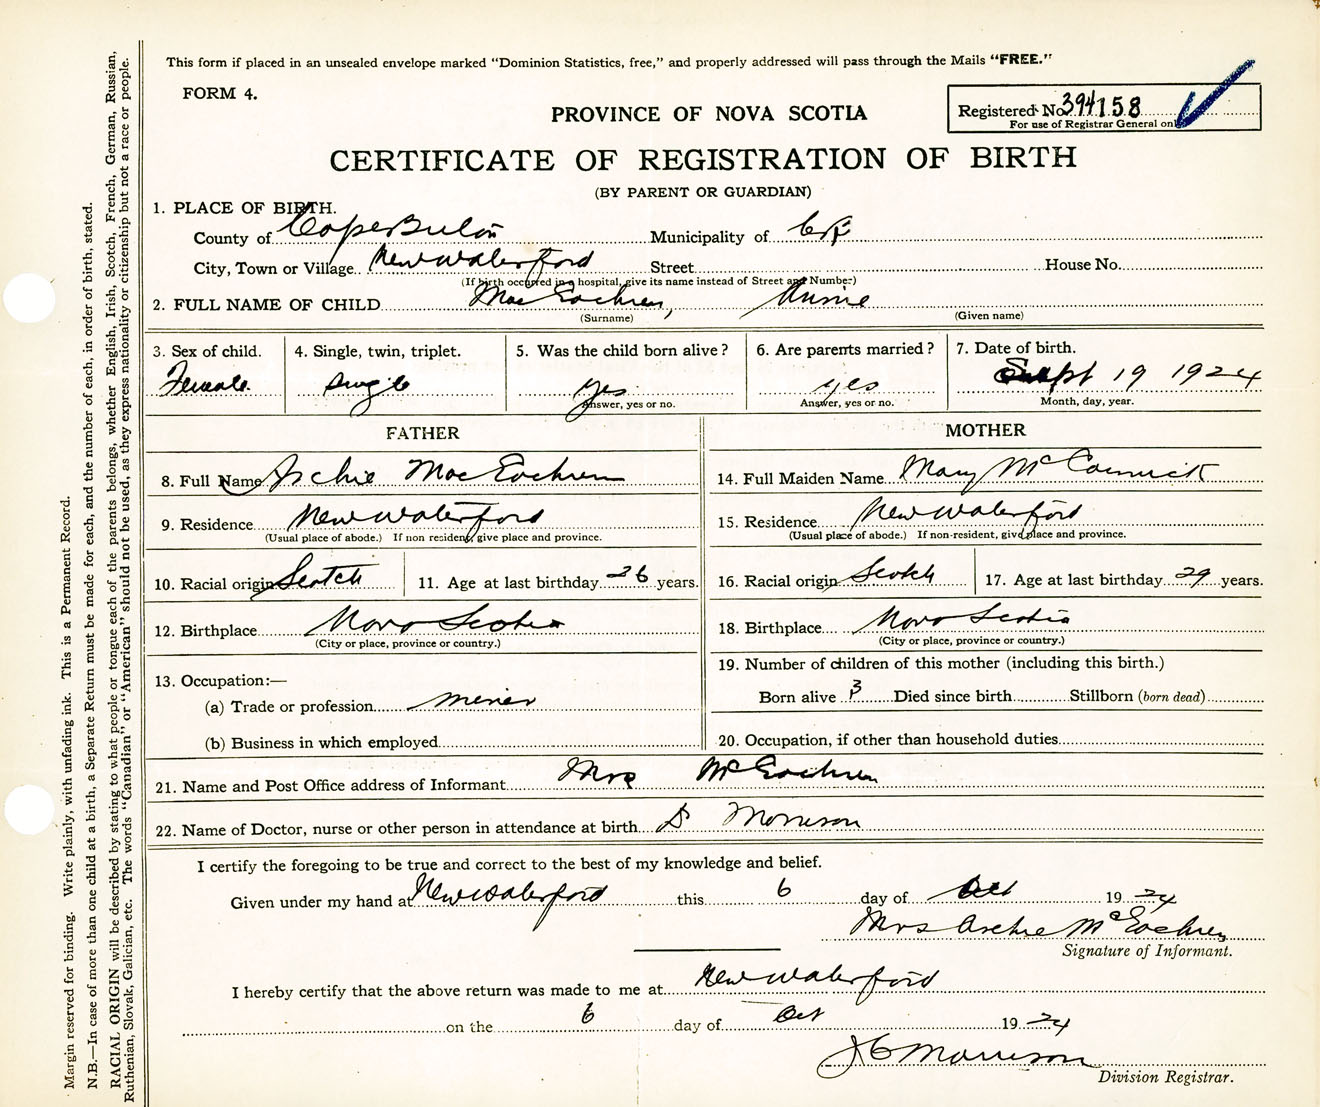 This form if placed in an unsealed envelope marked "Dominion Statistics, free," and properly addressed will pass through the Mails "FREE."
FORM 4.
PROVINCE OF NOVA SCOTIA
Registered No. 394158
For use of Registrar General only
CERTIFICATE OF REGISTRATION OF BIRTH
(BY PARENT OR GUARDIAN)
1. PLACE OF BIRTH.
County of Cape Breton Municipality of
City, Town or Village New Waterford Street House No.
(If birth occurred in a hospital, give its name instead of Street and Number)
2. FULL NAME OF CHILD MacEachren, Annie
(Surname) (Given name)
3. Sex of child. 4. Single, twin, triplet. 5. Was the child born alive? 6. Are parents married? 7. Date of birth.
Female single yes yes Sept 19 1924
Answer, yes or no. Answer, yes or no. Month, day, year.
FATHER
8. Full Name Archie MacEachren
9. Residence New Waterford
(Usual place of abode.) If non resident, give place and province.
10. Racial origin Scotch 11. Age at last birthday 26 years.
12. Birthplace Nova Scotia
(City or place, province or country.)
13. Occupation:—
(a) Trade or profession miner
(b) Business in which employed
MOTHER
14. Full Maiden Name Mary McCormick
15. Residence New Waterford
(Usual place of abode.) If non-resident, give place and province.
16. Racial origin Scotch 17. Age at last birthday 29 years.
18. Birthplace Nova Scotia
(City or place, province or country.)
19. Number of children of this mother (including this birth.)
Born alive 3 Died since birth Stillborn (born dead)
20. Occupation, if other than household duties
21. Name and Post Office address of Informant Mrs McEachren
22. Name of Doctor, nurse or other person in attendance at birth Morrison
I certify the foregoing to be true and correct to the best of my knowledge and belief.
Given under my hand at New Waterford this 6 day of Oct 1924
Mrs Archie McEachren
Signature of Informant.
I hereby certify that the above return was made to me at New Waterford
on the 6 day of Oct 1924
J C Morrison
Division Registrar.
Margin reserved for binding. Write plainly, with unfading ink. This is a Permanent Record.
N.B.—In case of more than one child at a birth, a Separate Return must be made for each, and the number of each, in order of birth, stated.
RACIAL ORIGIN will be described by stating to what people or tongue each of the parents belongs, whether English, Irish, Scotch, French, German, Russian,
Ruthenian, Slovak, Galician, etc. The words "Canadian" or "American" should not be used, as they express nationality or citizenship but not a race or people.